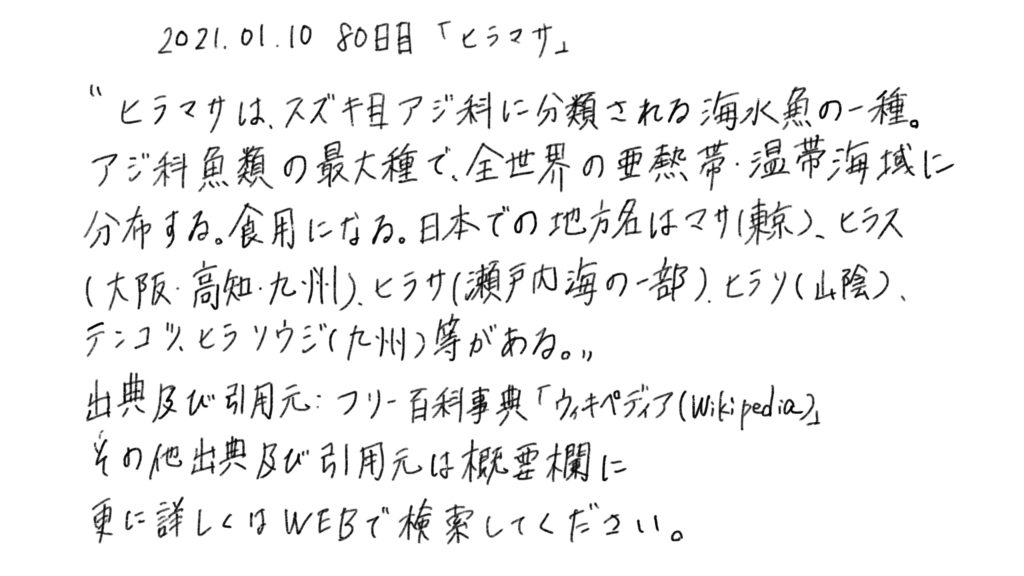 2021.01.10 80日目「ヒラマサ」
"ヒラマサは、スズキ目アジ科に分類される海水魚の一種。
アジ科魚類の最大種で、全世界の亜熱帯・温帯海域に
分布する。食用になる。日本での地方名はマサ(東京)、ヒラス
(大阪・高知・九州)、ヒラサ(瀬戸内海の一部)、ヒラソ(山陰)、
テンコツ、ヒラソウジ(九州)等がある。"
出典及び引用元:フリー百科事典「ウィキペディア(Wikipedia)」
その他出典及び引用元は概要欄に
更に詳しくはWEBで検索してください。